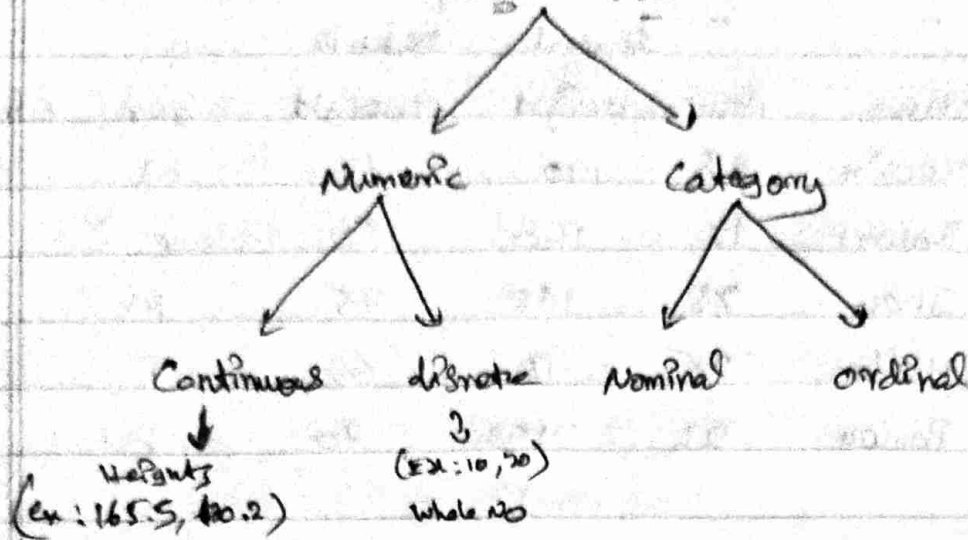 Numeric Category
Continuous disrete Nominal ordinal
Heights (Ex: 10, 20)
(ex: 165.5, 120.2) whole No